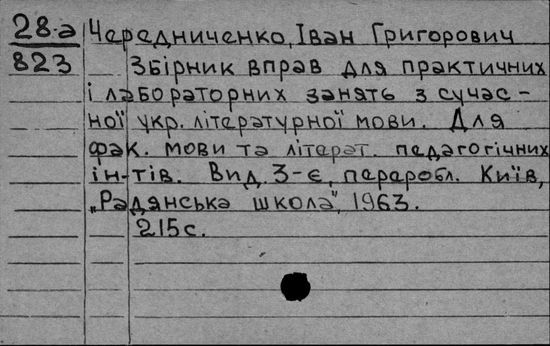 28-а Чередниченко, Іван Григорович
823 Збірник вправ для практичних
і лабораторних занять з сучас-
ної укр. літературної мови. Для
фак. мови та літерат. педагогічних
ін-тів. Вид. 3-є, перероbл. Київ,
„Радянська школа", 1963.
215с.